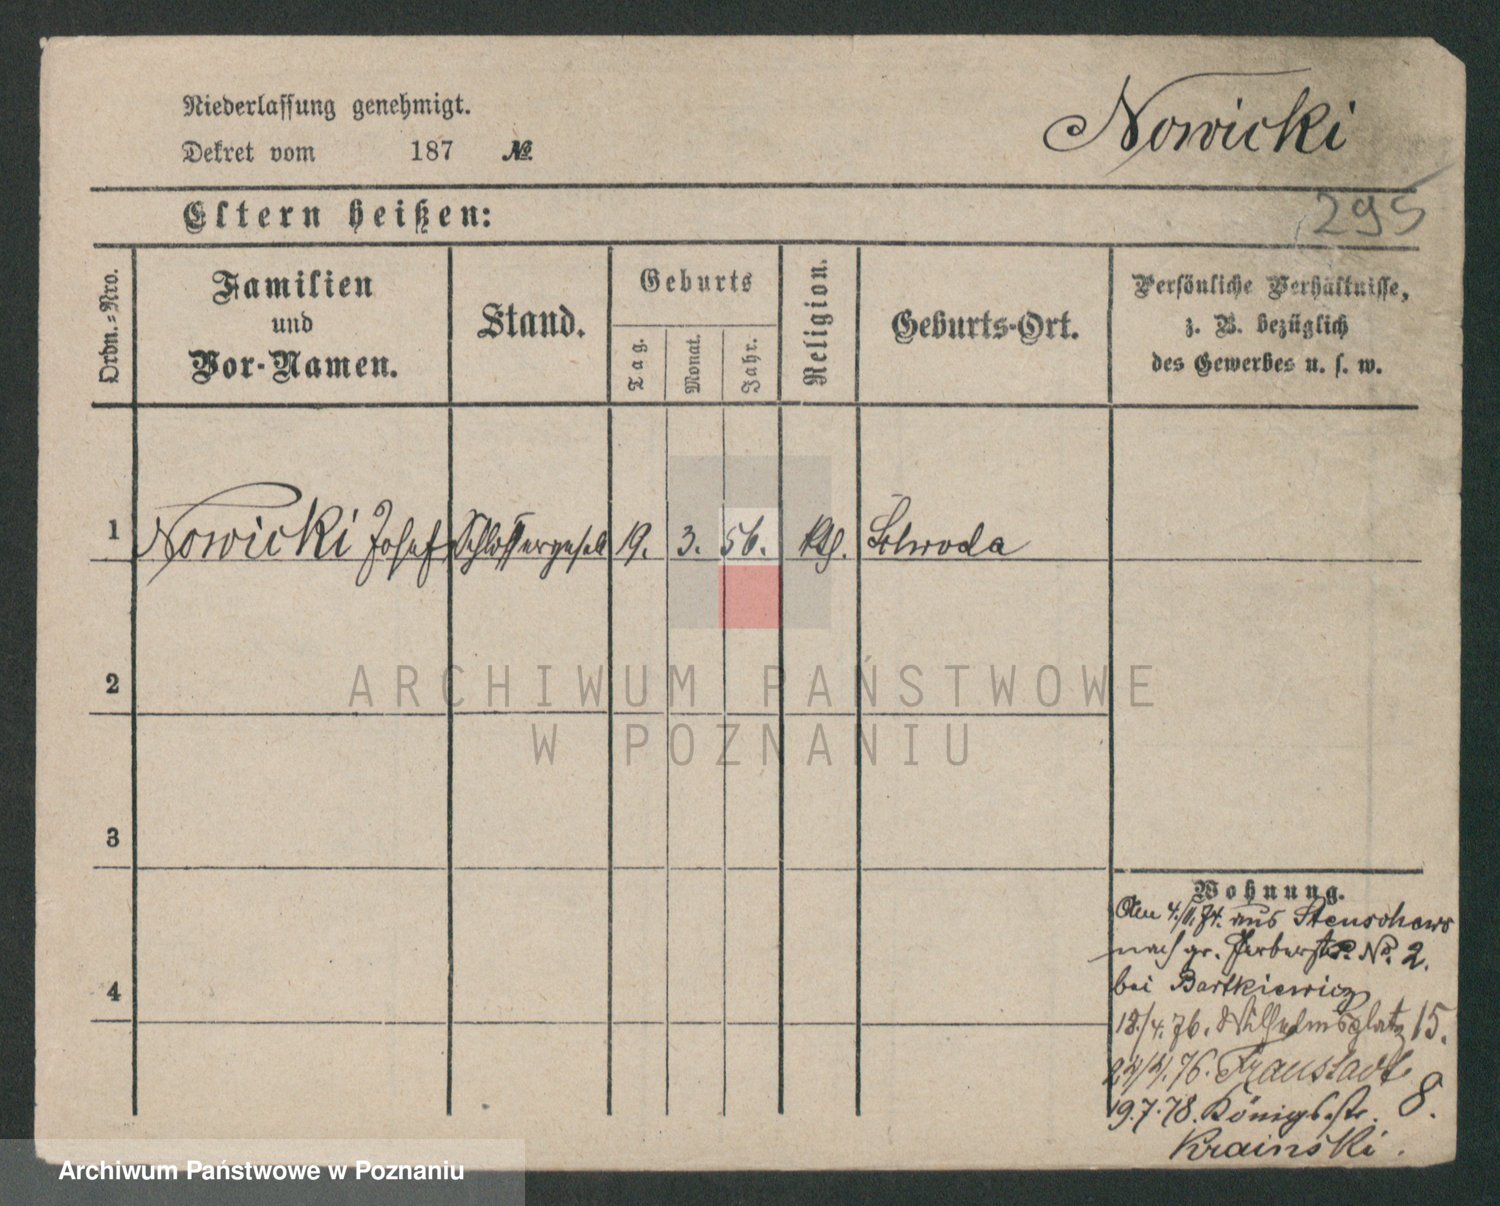 Niederlassung genehmigt.
Nowicki
Dekret vom 187 №
295
Eltern heißen:
Ordn.-Nro.
Familien
und
Vor-Namen.
Stand.
Geburts
Tag.
Monat.
Jahr.
Religion.
Geburts-Ort.
Persönliche Verhältnisse,
z. B. bezüglich
des Gewerbes u. s. w.
1 Nowicki Josef Schlossergesell 19. 3. 56. kth. Schroda
2
3
4
Wohnung.
Den 4./11.74. aus Stenschewo
nach gr. Gerberstr. No. 2.
bei Bartkiewicz
18/4.76. Wilhelmsplatz 15.
76. Fraustadt
19.7.78. Königsstr. 8.
Krainski.
ARCHIWUM PAŃSTWOWE
W POZNANIU
Archiwum Państwowe w Poznaniu